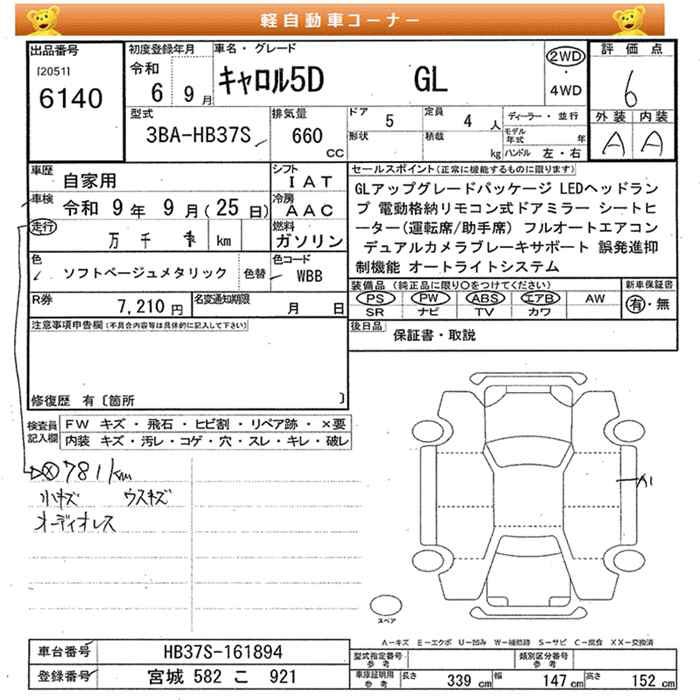 軽自動車コーナー
出品番号
[2051]
6140
初度登録年月
令和
6 9 月
車名・グレード
キャロル5D GL
2WD
4WD
評価点
6
外装 内装
A A
型式
3BA-HB37S
排気量
660 CC
ドア 5
定員 4 人
形状
積載 kg
ディーラー・並行
モデル年式 年
ハンドル 左・右
車歴
自家用
シフト
IAT
車検
令和 9 年 9 月(25 日)
冷房
AAC
走行
万 千 km
燃料
ガソリン
色
ソフトベージュメタリック
色替
色コード
WBB
R券
7,210 円
名変通知期限
月 日
セールスポイント(正常に機能するものに限ります)
GLアップグレードパッケージ LEDヘッドラン
プ 電動格納リモコン式ドアミラー シートヒ
ーター(運転席/助手席) フルオートエアコン
デュアルカメラブレーキサポート 誤発進抑
制機能 オートライトシステム
装備品(純正品に限り○をつけてください)
PS PW ABS エアB AW
SR ナビ TV カワ
新車保証書
有・無
後日品
保証書・取説
注意事項申告欄(不具合内容等は具体的に記入して下さい)
修復歴 有〔箇所 〕
検査員記入欄
FW キズ・飛石・ヒビ割・リペア跡・×要
内装 キズ・汚レ・コゲ・穴・スレ・キレ・破レ
781km
小キズ ウスキズ
オーディオレス
スペア
A-キズ E-エクボ U-凹み W-補修跡 S-サビ C-腐食 XX-交換済
車台番号
HB37S-161894
登録番号
宮城 582 こ 921
型式指定番号 参考
類別区分番号 参考
車庫証明用 参考
長さ 339 cm
幅 147 cm
高さ 152 cm